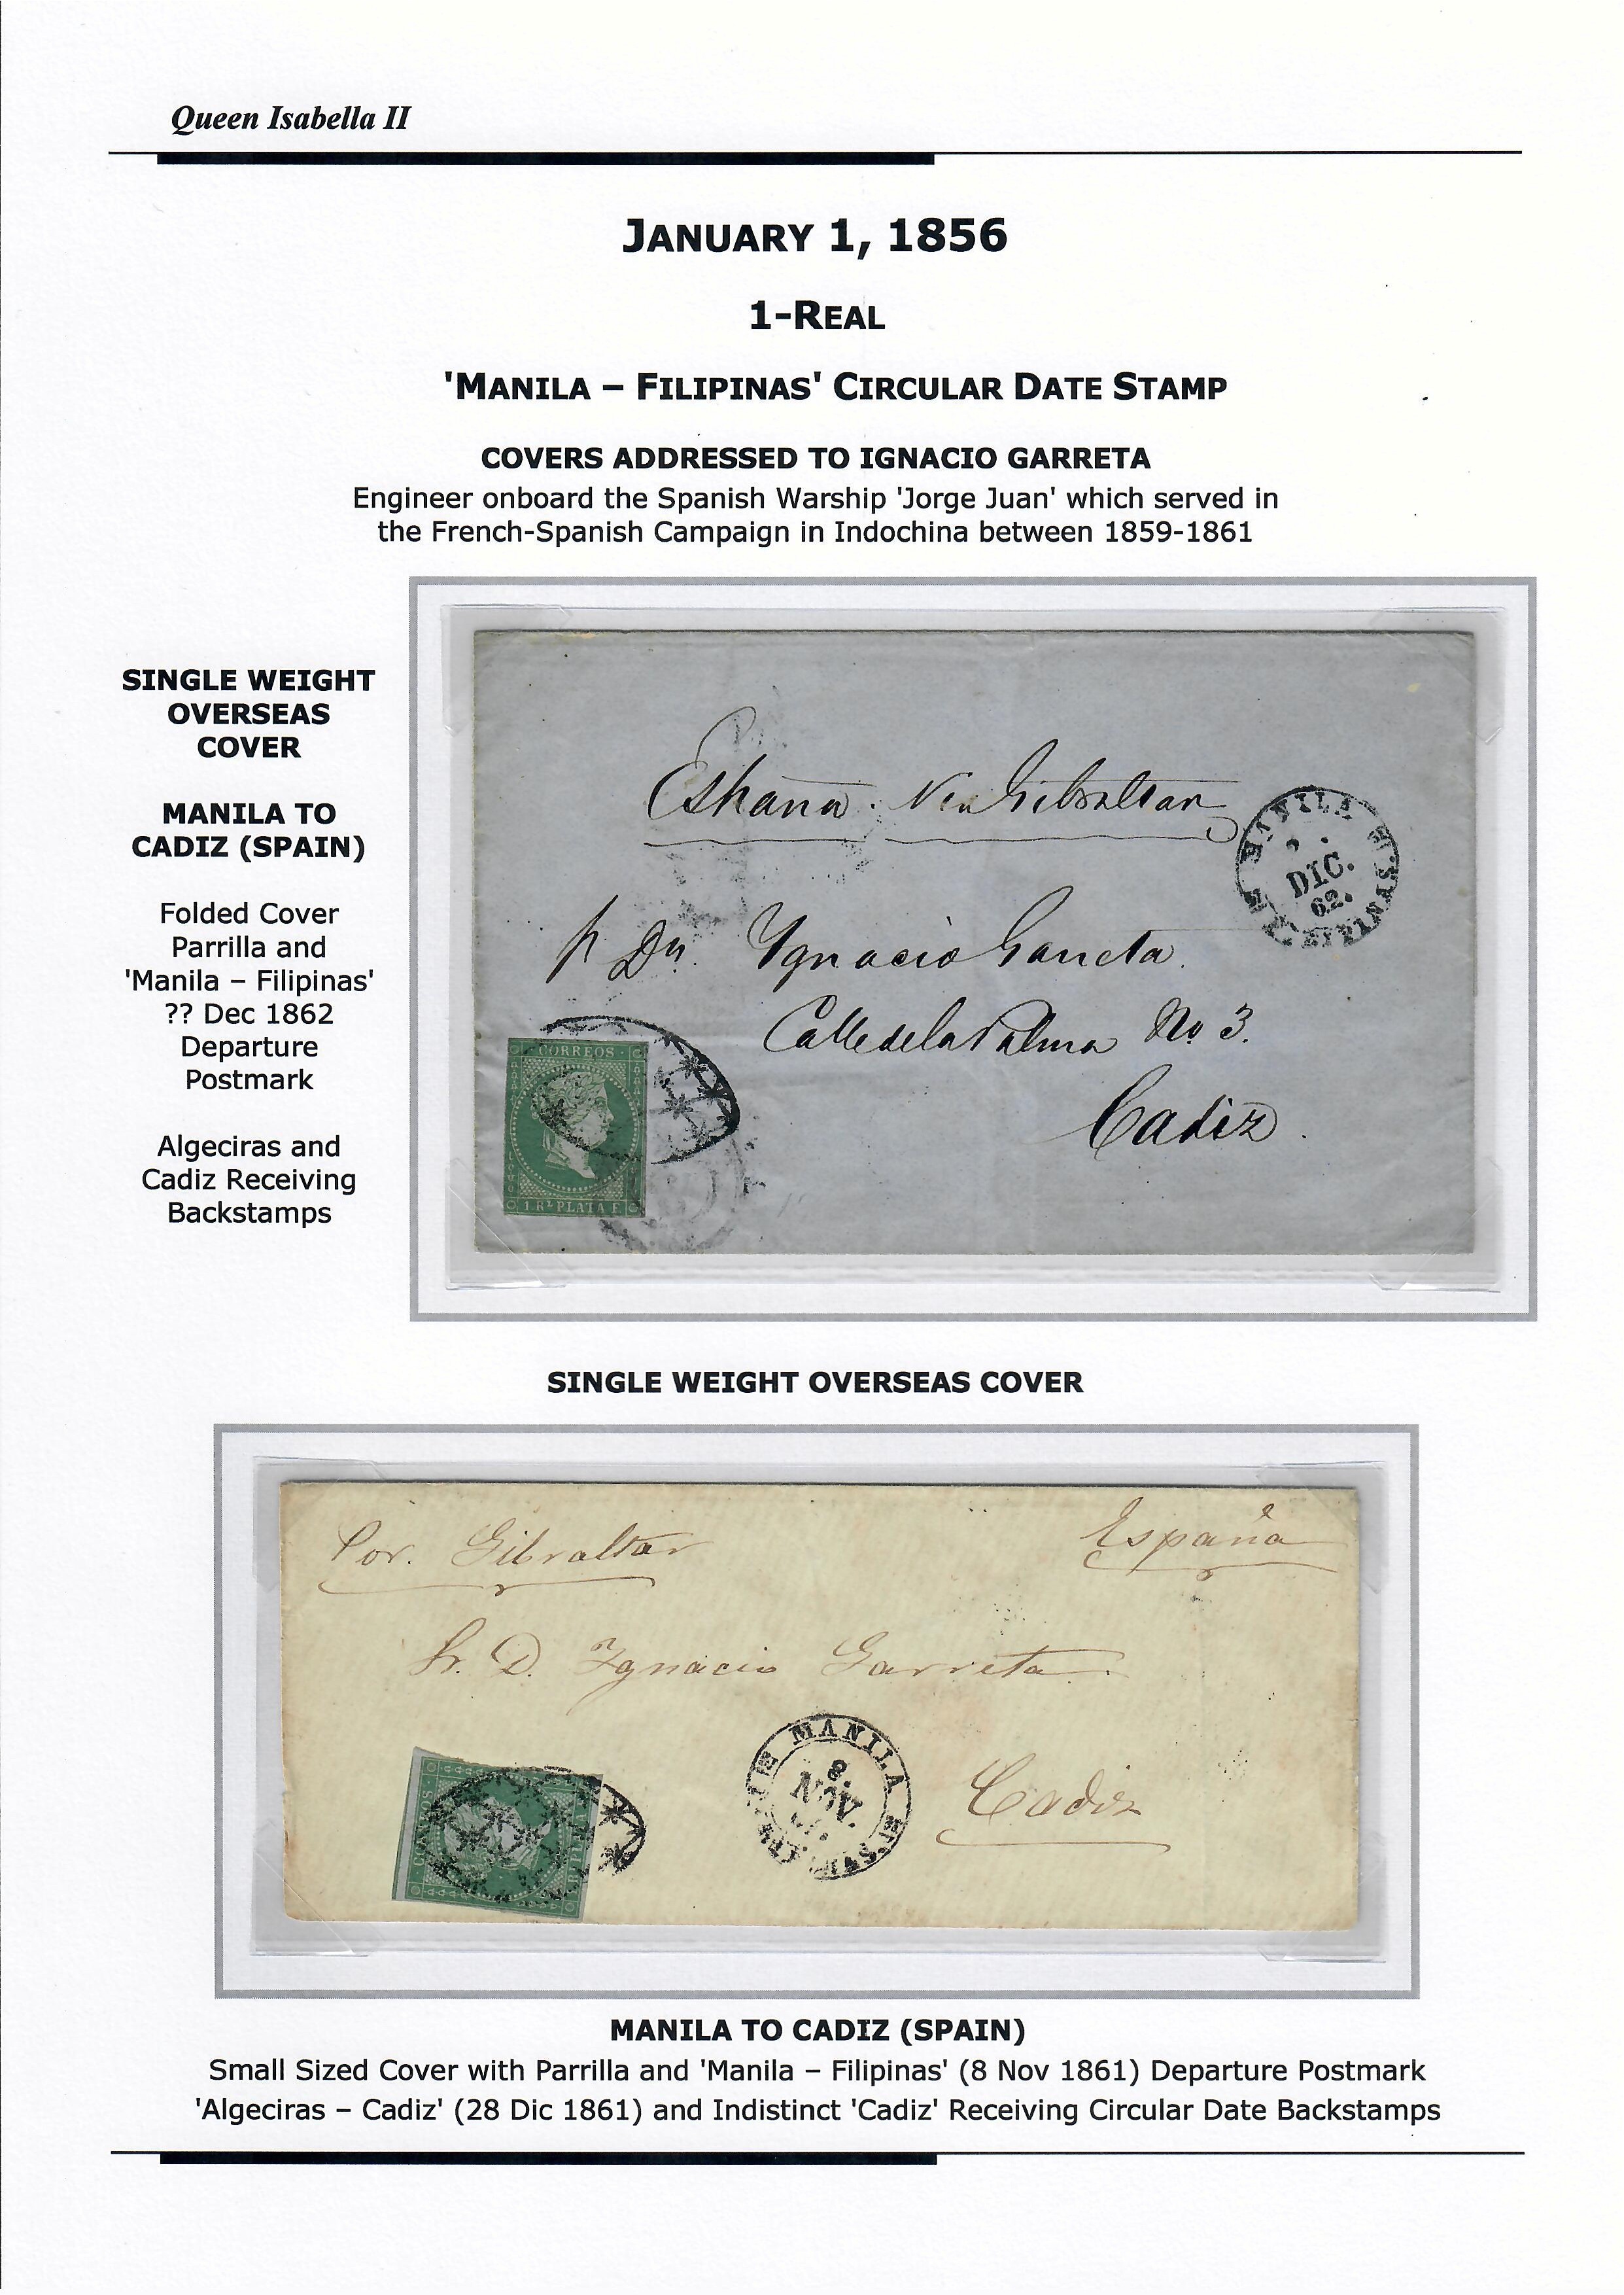 Queen Isabella II
JANUARY 1, 1856
1-REAL
'MANILA – FILIPINAS' CIRCULAR DATE STAMP
COVERS ADDRESSED TO IGNACIO GARRETA
Engineer onboard the Spanish Warship 'Jorge Juan' which served in
the French-Spanish Campaign in Indochina between 1859-1861
SINGLE WEIGHT
OVERSEAS
COVER
MANILA TO
CADIZ (SPAIN)
Folded Cover
Parrilla and
'Manila – Filipinas'
?? Dec 1862
Departure
Postmark
Algeciras and
Cadiz Receiving
Backstamps
España. Via Gibraltar
MANILA
DIC.
62.
FILIPINAS
Dn. Ygnacio Garreta.
Calle de la Palma No 3.
Cadiz.
CORREOS
1 RL PLATA F.
SINGLE WEIGHT OVERSEAS COVER
Por. Gibraltar
España
Sr. D. Ygnacio Garreta.
MANILA
8.
NOV.
Cadiz
CORREOS
MANILA TO CADIZ (SPAIN)
Small Sized Cover with Parrilla and 'Manila – Filipinas' (8 Nov 1861) Departure Postmark
'Algeciras – Cadiz' (28 Dic 1861) and Indistinct 'Cadiz' Receiving Circular Date Backstamps